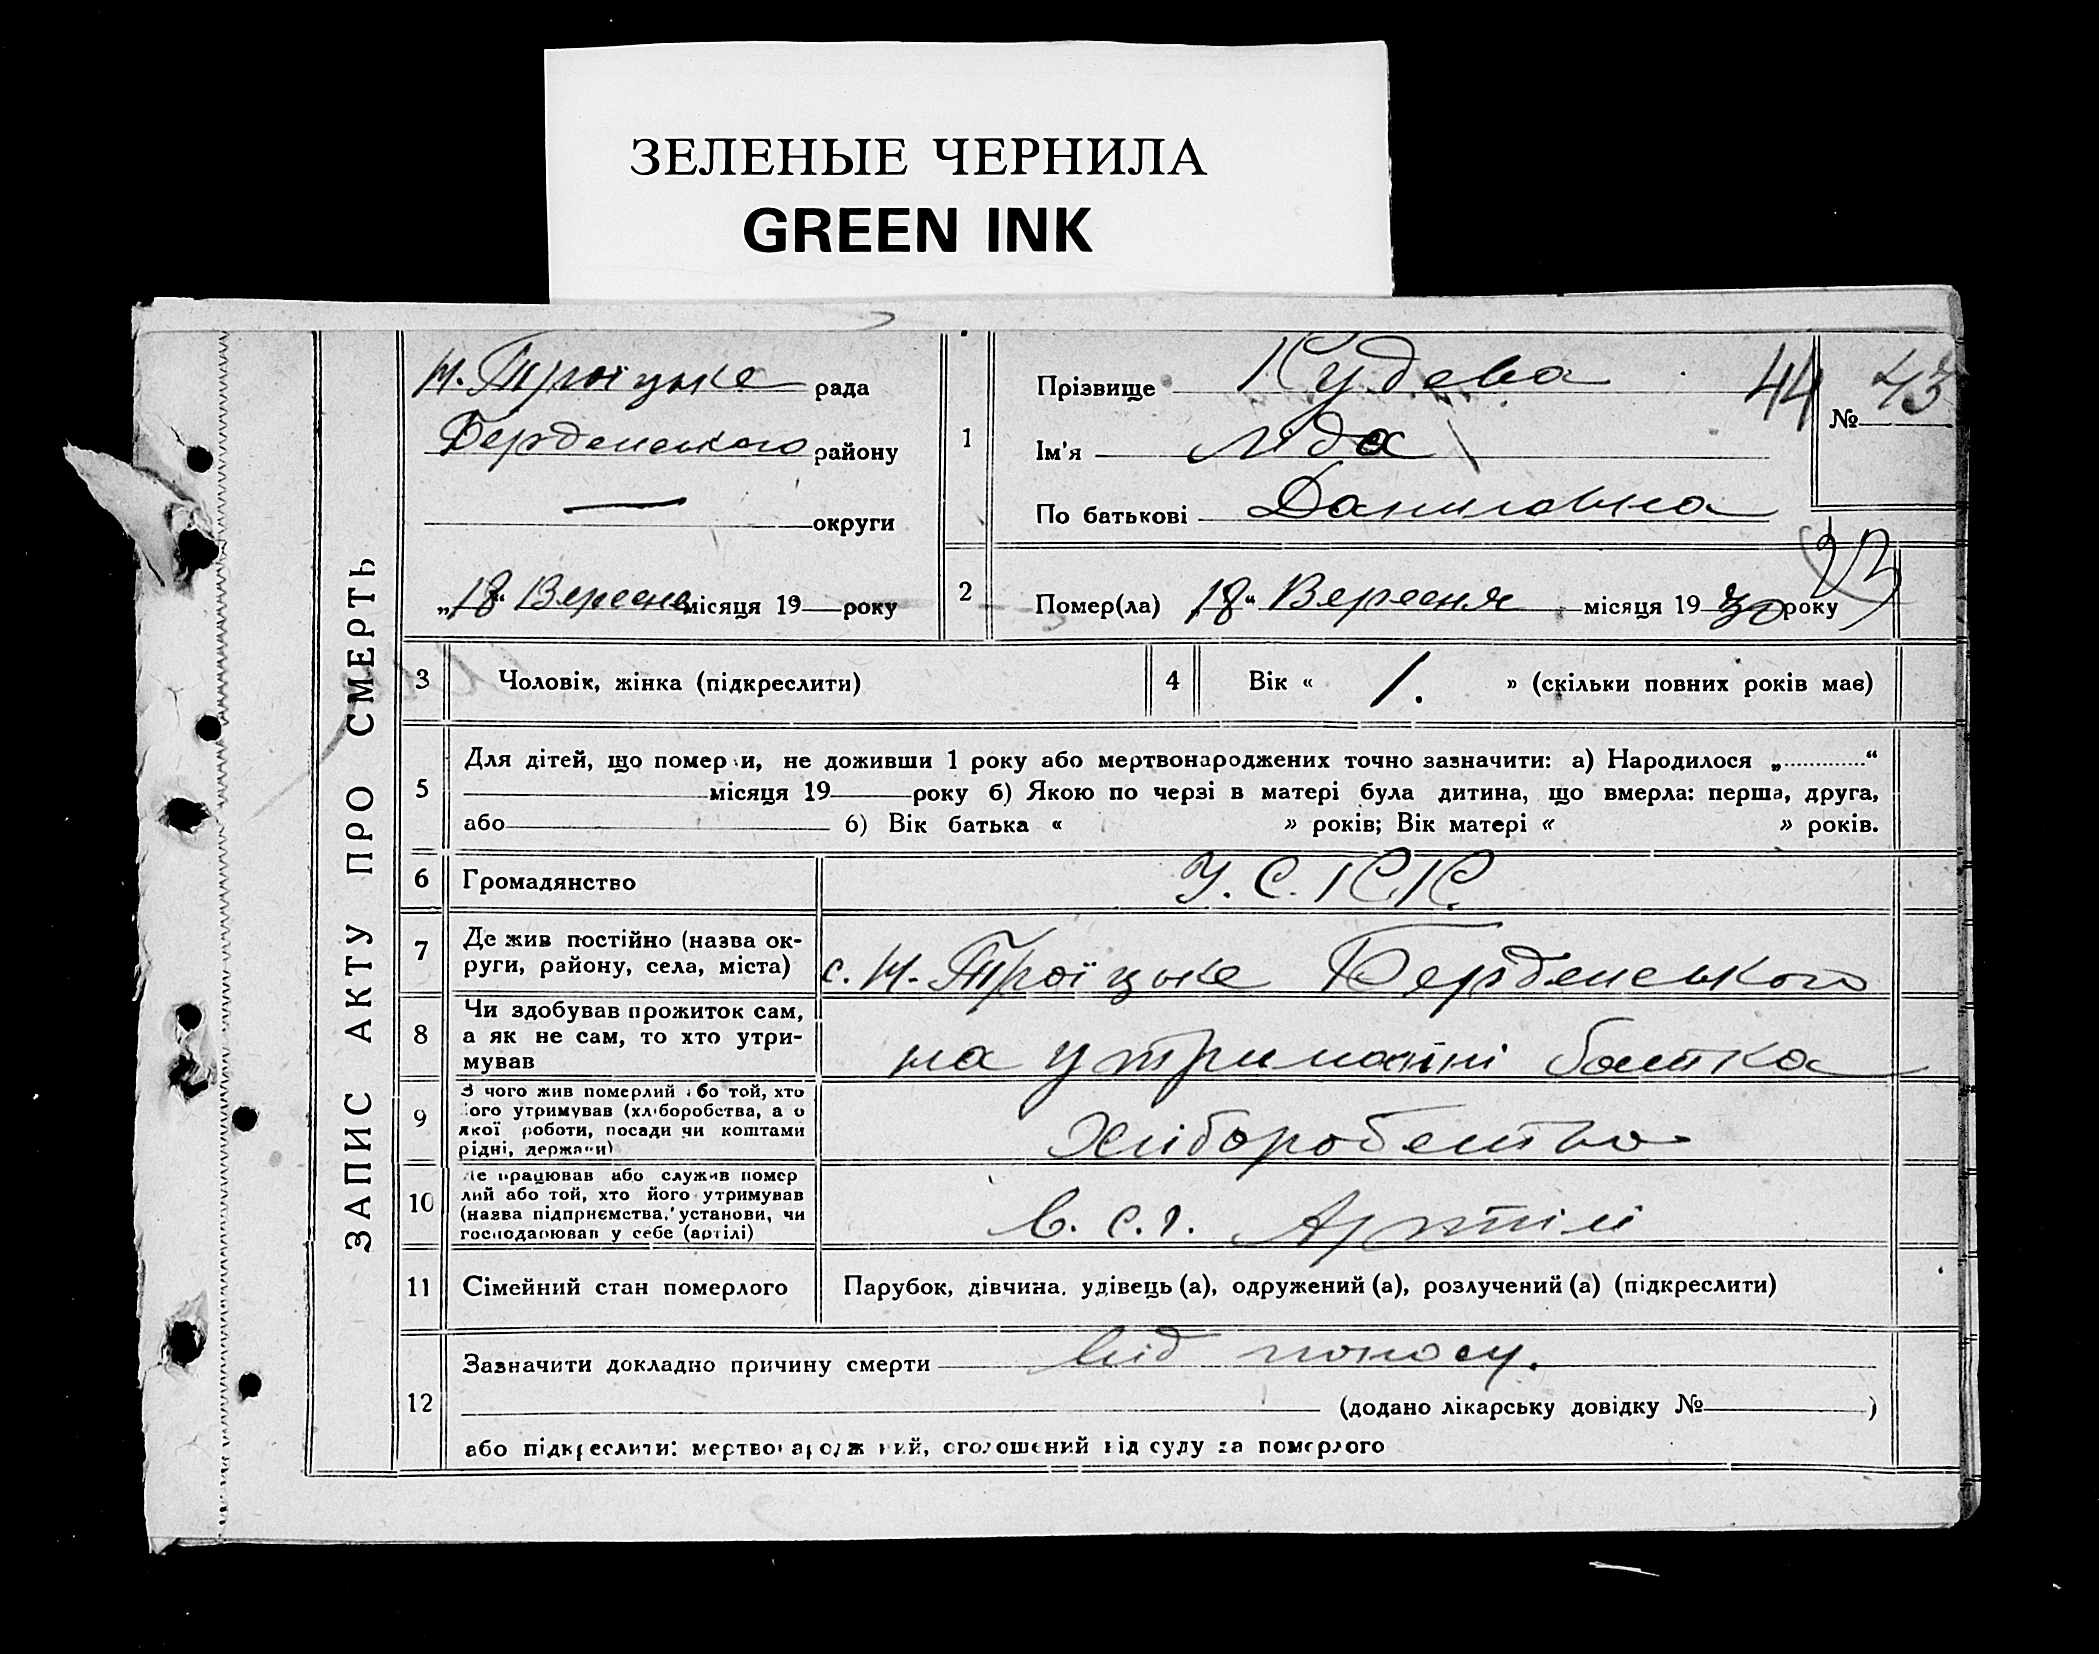 ЗЕЛЕНЫЕ ЧЕРНИЛА
GREEN INK
ЗАПИС АКТУ ПРО СМЕРТЬ
Н. Троїцьке рада
Берденського району
— округи
„18“ Вересня місяця 19 року
1
Прізвище Кудева
Ім'я Ліда
По батькові Даниловна
44
№ 43
2
Помер(ла) „18“ Вересня місяця 19 року
3 Чоловік, жінка (підкреслити)
4 Вік « 1. » (скільки повних років має)
5
Для дітей, що померли, не доживши 1 року або мертвонароджених точно зазначити: а) Народилося „ “
місяця 19 року б) Якою по черзі в матері була дитина, що вмерла: перша, друга,
або 6) Вік батька « » років; Вік матері « » років.
6 Громадянство У. С. Р. Р.
7 Де жив постійно (назва ок-
руги, району, села, міста)
с. Н. Троїцьке Берденського
8 Чи здобував прожиток сам,
а як не сам, то хто утри-
мував
на утриманні батка
9 З чого жив померлий або той, хто
його утримував (хліборобства, а о
якої роботи, посади чи коштами
рідні, держави)
Хліборобство
10 Де працював або служив помер
лий або той, хто його утримував
(назва підприємства, установи, чи
господарював у себе (артілі)
в. с. г. Артілі
11 Сімейний стан померлого Парубок, дівчина, удівець (а), одружений (а), розлучений (а) (підкреслити)
12
Зазначити докладно причину смерти від поносу.
(додано лікарську довідку № )
або підкреслити: мертвонароджений, оголошений від суду за померлого